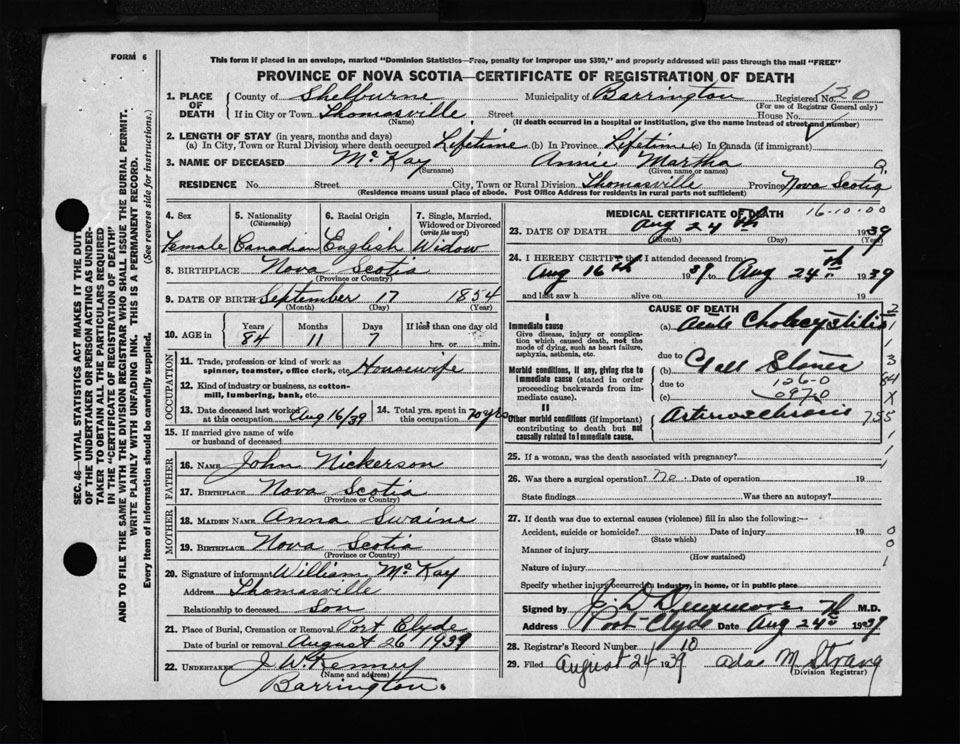 FORM 6
This form if placed in an envelope, marked "Dominion Statistics—Free, penalty for improper use $300," and properly addressed will pass through the mail "FREE"
PROVINCE OF NOVA SCOTIA—CERTIFICATE OF REGISTRATION OF DEATH
1. PLACE OF DEATH County of Shelburne Municipality of Barrington Registered No. 120
(For use of Registrar General only)
If in City or Town Thomasville Street House No.
(Name) (If death occurred in a hospital or institution, give the name instead of street and number)
2. LENGTH OF STAY (in years, months and days)
(a) In City, Town or Rural Division where death occurred Lifetime (b) In Province Lifetime (c) In Canada (if immigrant)
3. NAME OF DECEASED McKay Annie Martha
(Surname) (Given name or names)
RESIDENCE No. Street City, Town or Rural Division Thomasville Province Nova Scotia
(Residence means usual place of abode. Post Office Address for residents in rural parts not sufficient)
4. Sex 5. Nationality (Citizenship) 6. Racial Origin 7. Single, Married, Widowed or Divorced (write the word)
Female Canadian English Widow
8. BIRTHPLACE Nova Scotia
(Province or Country)
9. DATE OF BIRTH September 17 1854
(Month) (Day) (Year)
10. AGE in Years Months Days If less than one day old
84 11 7 hrs. or min.
OCCUPATION
11. Trade, profession or kind of work as spinner, teamster, office clerk, etc. Housewife
12. Kind of industry or business, as cotton-mill, lumbering, bank, etc.
13. Date deceased last worked at this occupation Aug 16/39 14. Total yrs. spent in this occupation 70 yrs
15. If married give name of wife or husband of deceased
FATHER
16. NAME John Nickerson
17. BIRTHPLACE Nova Scotia
(Province or Country)
MOTHER
18. MAIDEN NAME Anna Swaine
19. BIRTHPLACE Nova Scotia
(Province or Country)
20. Signature of informant William McKay
Address Thomasville
Relationship to deceased Son
21. Place of Burial, Cremation or Removal Port Clyde
Date of burial or removal August 26 1939
22. UNDERTAKER J. W. Kenney
(Name and address)
Barrington.
MEDICAL CERTIFICATE OF DEATH 16-10-00
23. DATE OF DEATH Aug 24th 1939
(Month) (Day) (Year)
24. I HEREBY CERTIFY that I attended deceased from:
Aug 16th 1939 to Aug 24th 1939
and last saw h alive on 19
CAUSE OF DEATH
I
Immediate cause (a) Acute Cholecystitis
Give disease, injury or complication which caused death, not the mode of dying, such as heart failure, asphyxia, asthenia, etc.
due to
Morbid conditions, if any, giving rise to immediate cause (stated in order proceeding backwards from immediate cause).
(b) Gall Stones
due to 126-0
(c) 0970
II
Other morbid conditions (if important) contributing to death but not causally related to immediate cause.
Arteriosclerosis
25. If a woman, was the death associated with pregnancy?
26. Was there a surgical operation? No. Date of operation 19
State findings Was there an autopsy?
27. If death was due to external causes (violence) fill in also the following:—
Accident, suicide or homicide? Date of injury 19
(State which)
Manner of injury
(How sustained)
Nature of injury
Specify whether injury occurred in industry, in home, or in public place
Signed by M.D.
Address Port Clyde Date Aug 24th 1939
28. Registrar's Record Number 110
29. Filed August 24 1939 Ada M Strang
(Division Registrar)
SEC. 46—VITAL STATISTICS ACT MAKES IT THE DUTY
OF THE UNDERTAKER OR PERSON ACTING AS UNDER-
TAKER TO OBTAIN ALL THE PARTICULARS REQUIRED
IN THE "CERTIFICATE OF REGISTRATION OF DEATH"
AND TO FILE THE SAME WITH THE DIVISION REGISTRAR WHO SHALL ISSUE THE BURIAL PERMIT.
WRITE PLAINLY WITH UNFADING INK. THIS IS A PERMANENT RECORD.
Every item of information should be carefully supplied. (See reverse side for instructions.)